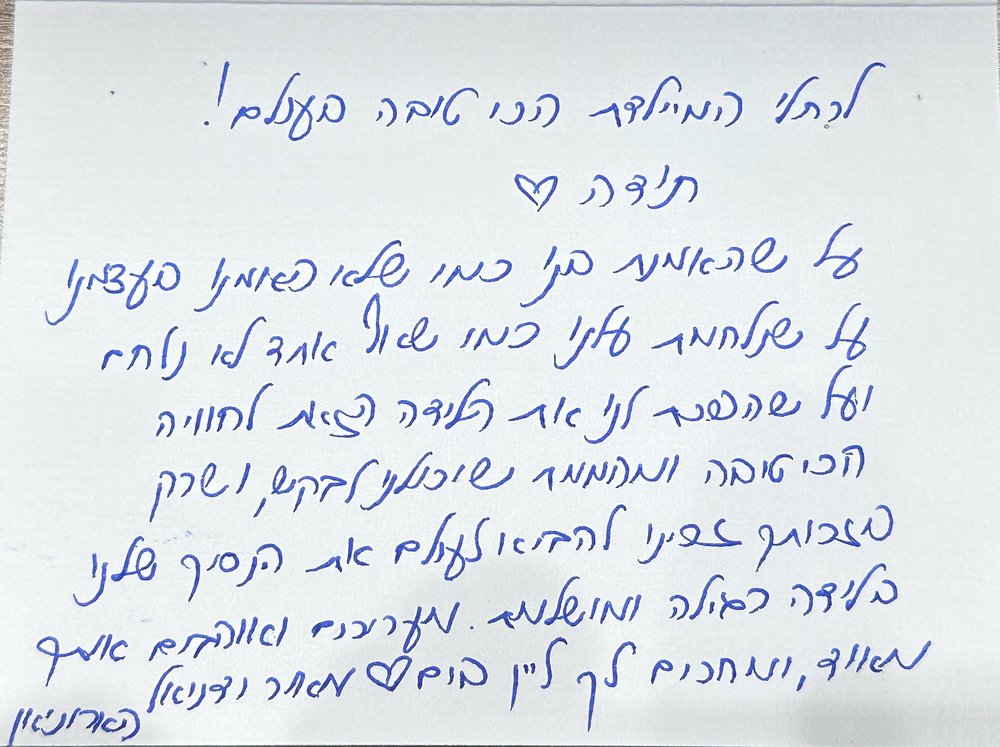 לרחלי המיילדת הכי טובה בעולם!
תודה ♡
על שהאמנת בנו כמו שלא האמנו בעצמנו
על שנלחמת עלינו כמו שאף אחד לא נלחם
ועל שהפכת לנו את הלידה הזאת לחוויה
הכי טובה ומהממת שיכולנו לבקש, ושרק
בזכותך זכינו להביא לעולם את הנסיך שלנו
בלידה רגילה ומושלמת. מעריכים ואוהבים אותך
מאוד, ומחכים לך ליין בים ♡ מאור ודניאל